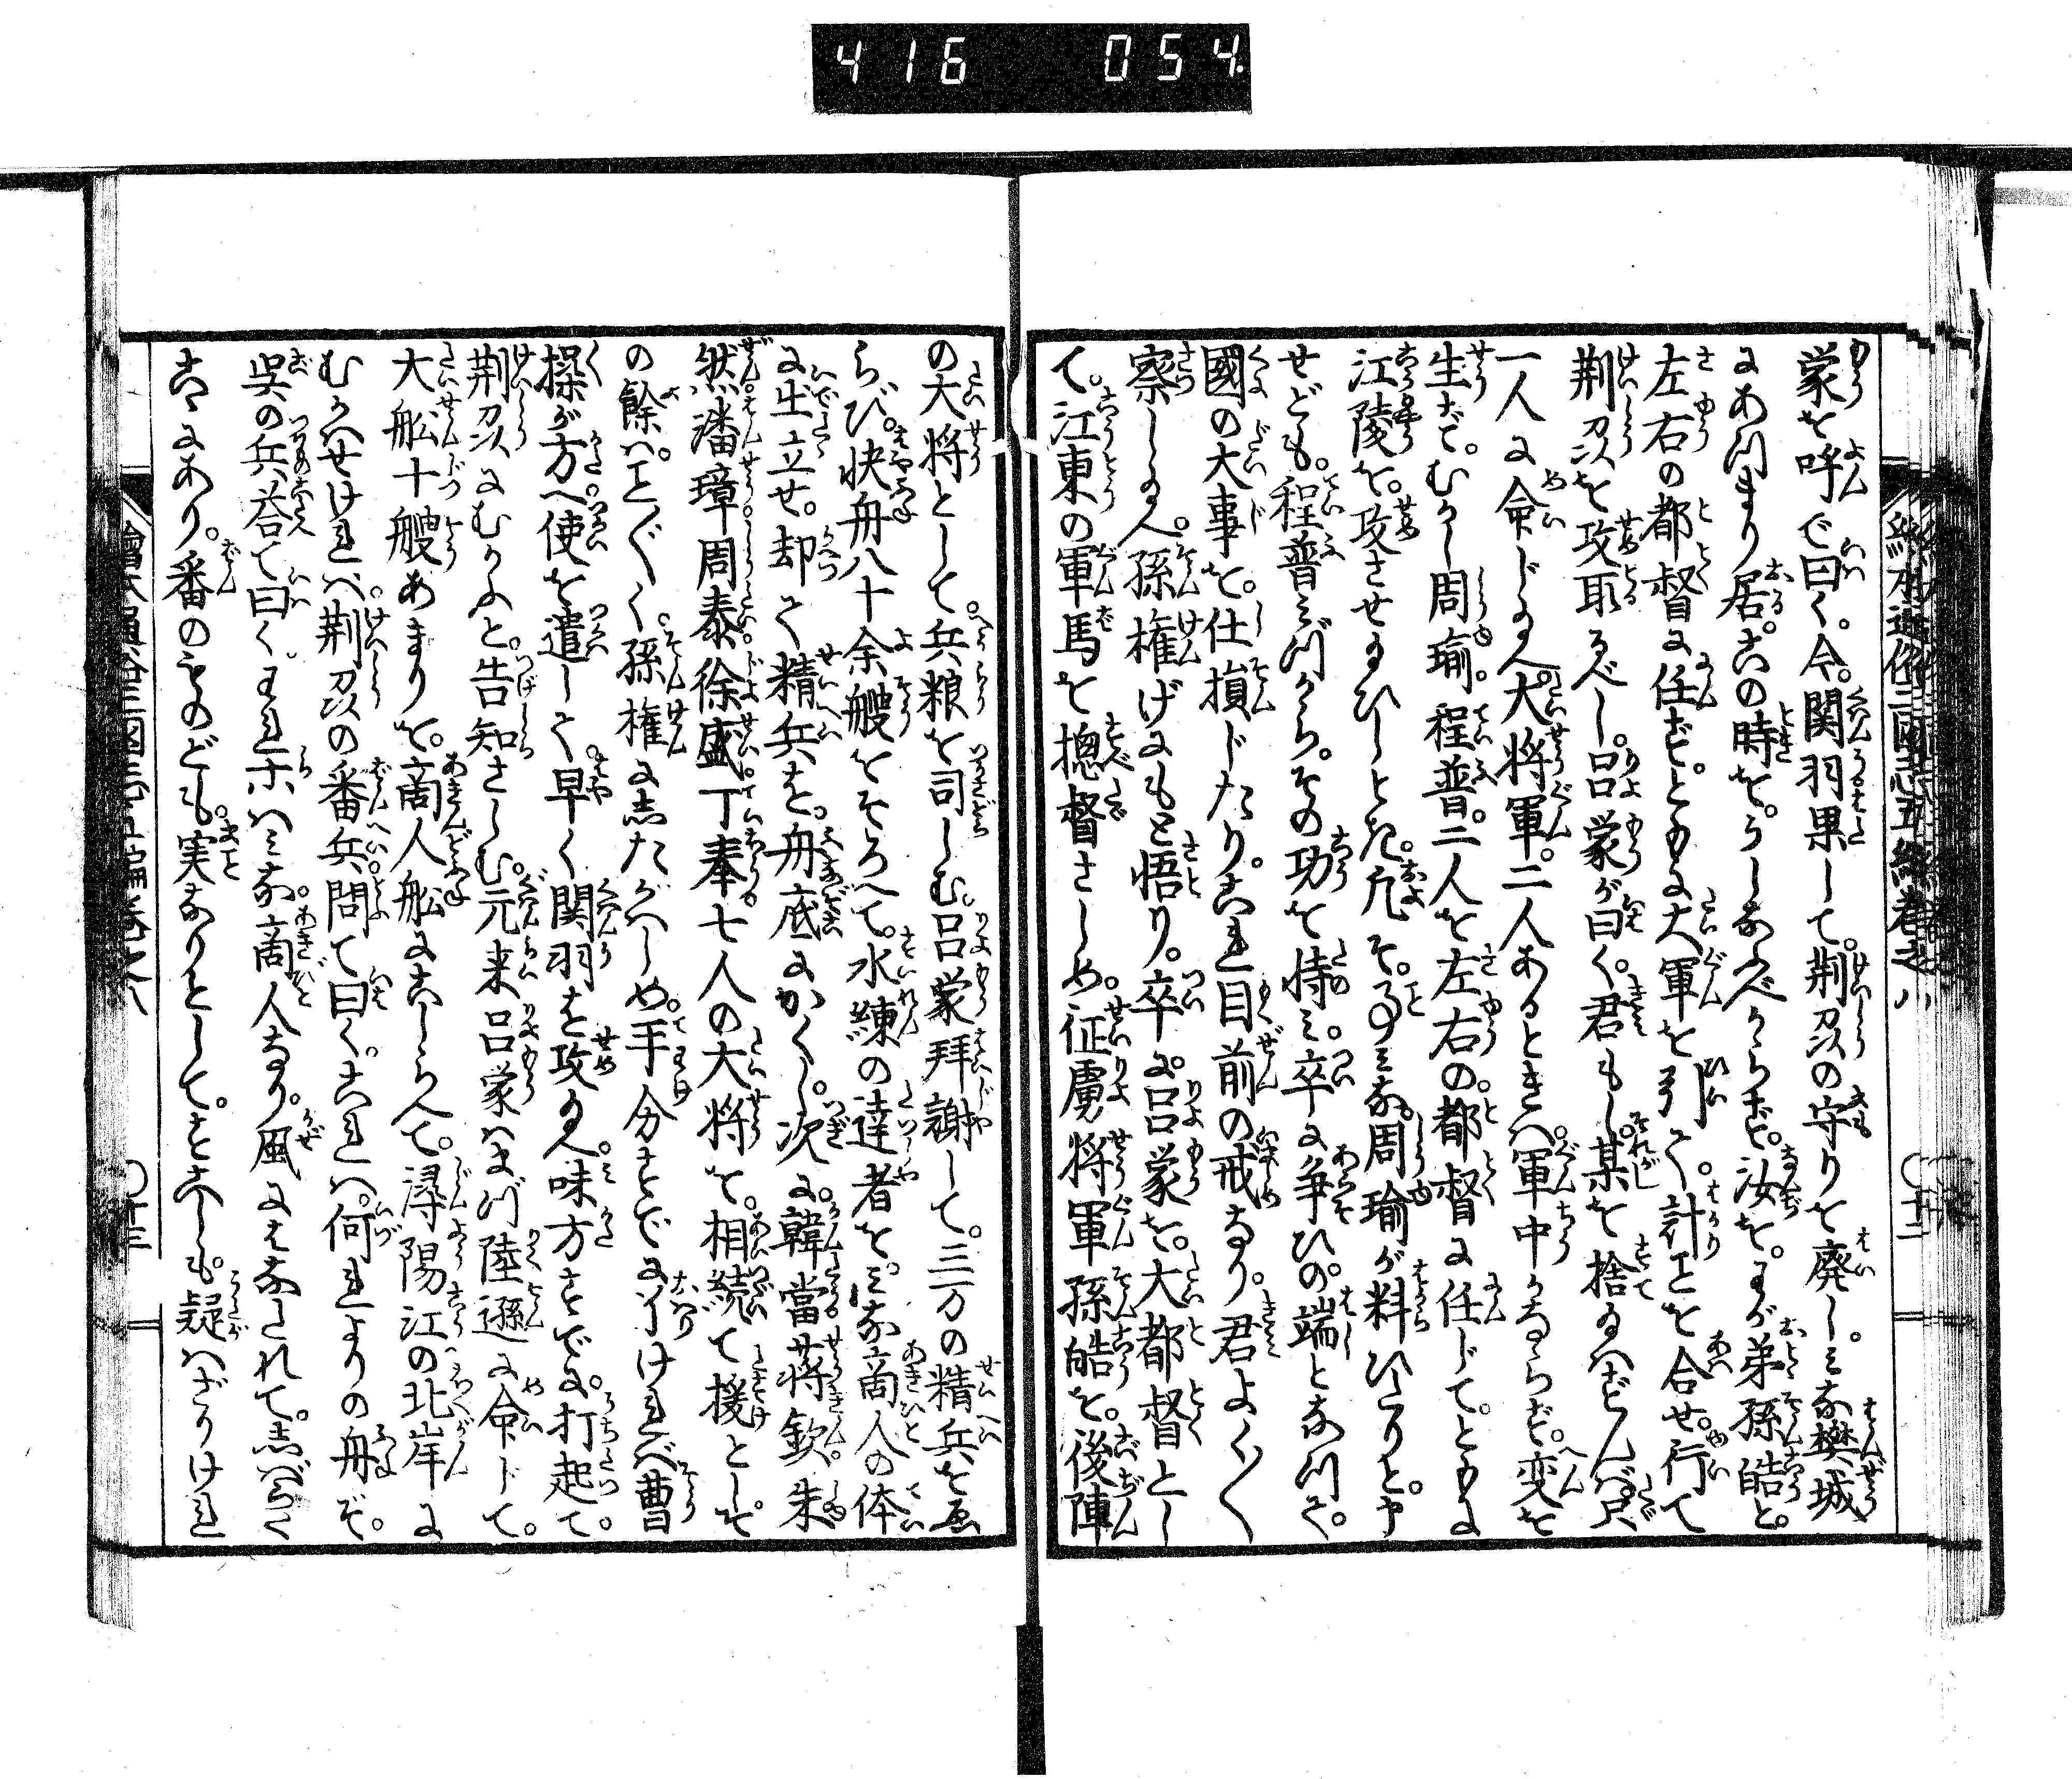 416 054
繪本通俗三國志五編卷之八 〇十二
蒙を呼で曰く。今。関羽果して。荆州の守りを廃し。みな樊城
にあつまり居。この時を。うしなふべからず。汝を。わが弟孫皓と。
左右の都督に任ず。ともに大軍を引て。計ことを合せ。行て
荆州を攻取るべし。呂蒙が曰く。君もし。某を捨給はずんば只
一人に命じ給へ。大将軍。二人あるときは。軍中かならず。変を
生ず。むかし周瑜。程普。二人を左右の。都督に任じて。ともに
江陵を。攻させ給ひしとき。凡そ。事みな。周瑜が料ひたりと。申
せども。程普みづから。その功を恃み。卒に争ひの。端となりつる。
國の大事を。仕損じたり。これ目前の戒なり。君よく〳〵
察し給へ。孫権げにもと悟り。卒に呂蒙を。大都督とし
て。江東の軍馬を摠督さしめ。征虜将軍孫皓を。後陣
の大将として。兵粮を司しむ。呂蒙拜謝して。三万の精兵をゑ
らび。快舟八十余艘をそろへて。水練の達者を。みな商人の体
に出立せ。却て精兵を。舟底にかくし。次に。韓當蒋欽。朱
然。潘璋周泰徐盛丁奉七人の大将を。相続て援とし。そ
の餘は。こと〴〵く。孫権にしたがはしめ。手分すでに了ければ曹
操が方へ。使を遣して。早く関羽を攻給へ。味方すでに。打起て。
荆州にむかふと。告知さしむ。元来呂蒙はまづ陸遜に命じて。
大舩十艘あまりを。商人舩にこしらへて。潯陽江の北岸に
むかはせければ。荆州の番兵問て曰く。これは。何れよりの舟ぞ。
呉の兵荅て曰く。われホはみな。商人なり。風にはなされて。しばらく
こゝにあり。番のものども。実なりとして。すこしも。疑はざりけれ
繪本通俗三國志五編卷之八 〇十三